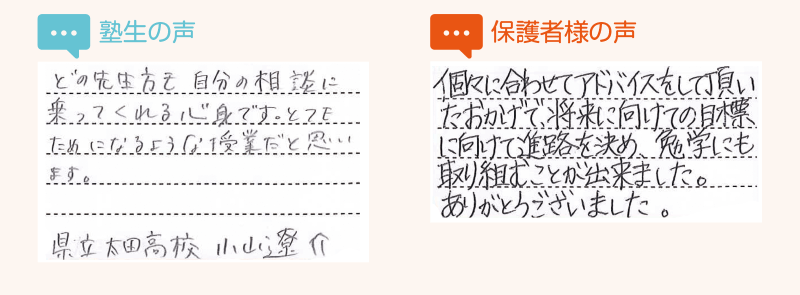 塾生の声
どの先生方も自分の相談に
乗ってくれる心身です。とても
ためになるような授業だと思い
ます。
県立太田高校 小山 遼介
保護者様の声
個々に合わせてアドバイスをして頂い
たおかげで、将来に向けての目標
に向けて進路を決め、勉学にも
取り組むことが出来ました。
ありがとうございました。